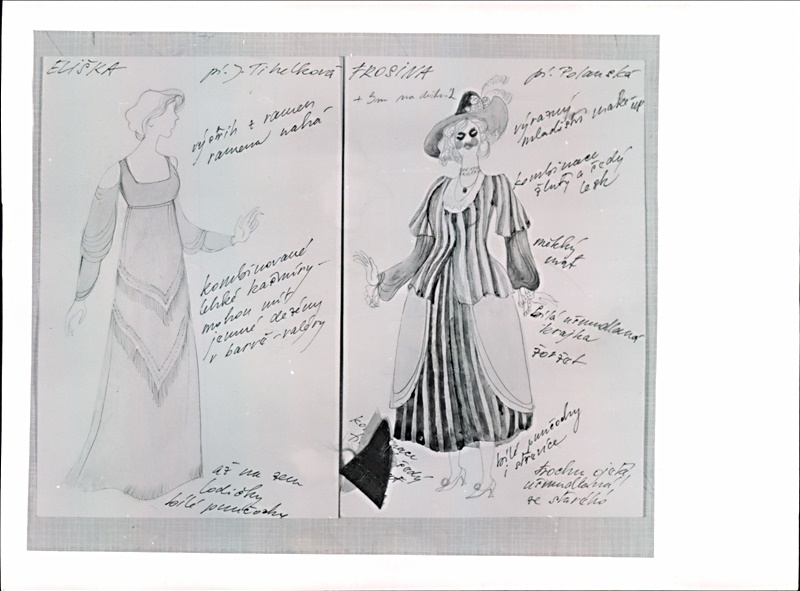 ELIŠKA
př. J. Tihelková
výstřih z ramen
ramena nahá
kombinované
lehké kašmíry -
mohou mít
jemné dezény
v barvě - valéry
až na zem
lodičky
bílé punčochy
FROSINA
př. Polanská
výrazný
mladistvý make-up
kombinace
žlutý a šedý
lesk
měkký
mat
bílá učmudlaná
krajka
žoržet
bílé punčochy
i střevíce
trochu ojetá
učmudlaná!
ze starého